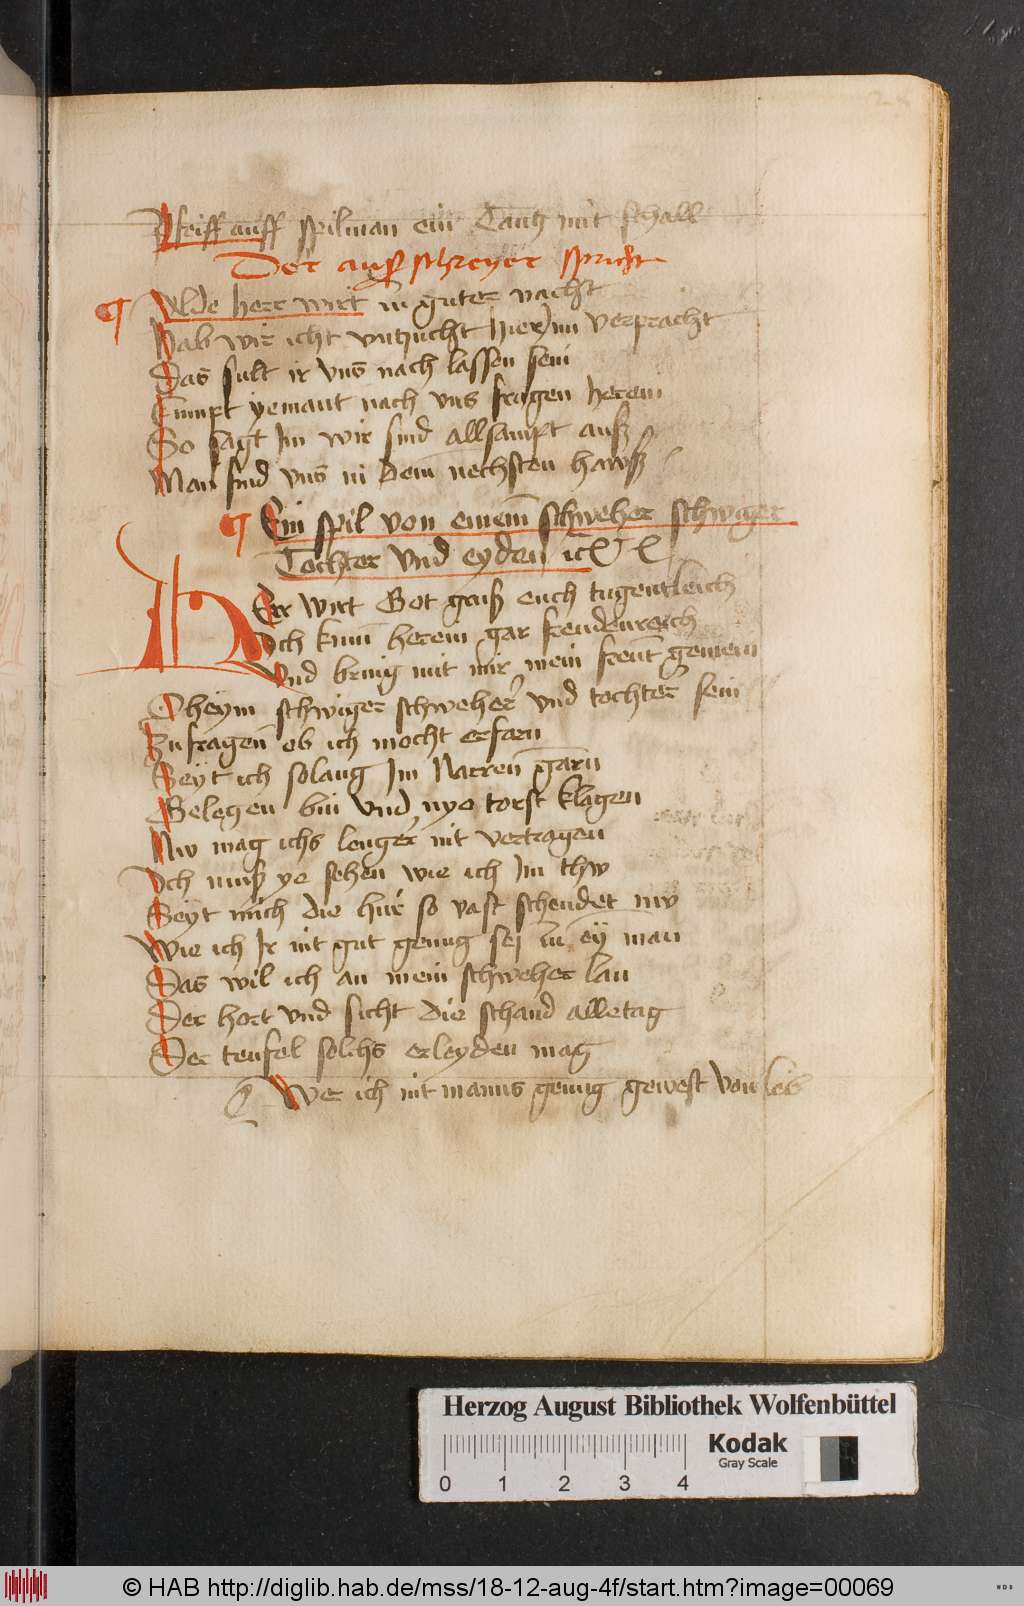 Pfeiff auff spilman ein Tantz mit schall
Der auß schreyer spricht
¶ Alde herr wirt in guter nacht
Hab wir icht vntzucht hierjnn verpracht
Das sult ir vns nach lassen sein
Kumpt yemant nach vns fragen herein
So sagt Im wir sind allsampt auß
Man find vns in dem nechsten hawß
¶ Ein spil von einem schweher schwiger
Tochter vnd eyden ꝛc
HErr wirt Got gruß euch tugentleich
Ich kum herein gar freudenreich
Vnd bring mit mir mein freunt gemein
Oheym schwiger schweher vnd tochter sein
Zufragen ob ich mocht erfarn
Seyt ich solang Im Narren garn
Gelegen bin vnd nye torst klagen
Nw mag ichs lenger nit vertragen
Ich muß ye sehen wie ich Im thw
Seyt mich die hur so vast schendet nw
Wie ich Ir nit gut genug sej zu ey man
Das wil ich an mein schweher lan
Der hort vnd sicht die schand alletag
Der teufel solchs erleyden mag
Wer ich nit manns genug gewest von leib
Herzog August Bibliothek Wolfenbüttel
Kodak
Gray Scale
0 1 2 3 4
© HAB http://diglib.hab.de/mss/18-12-aug-4f/start.htm?image=00069